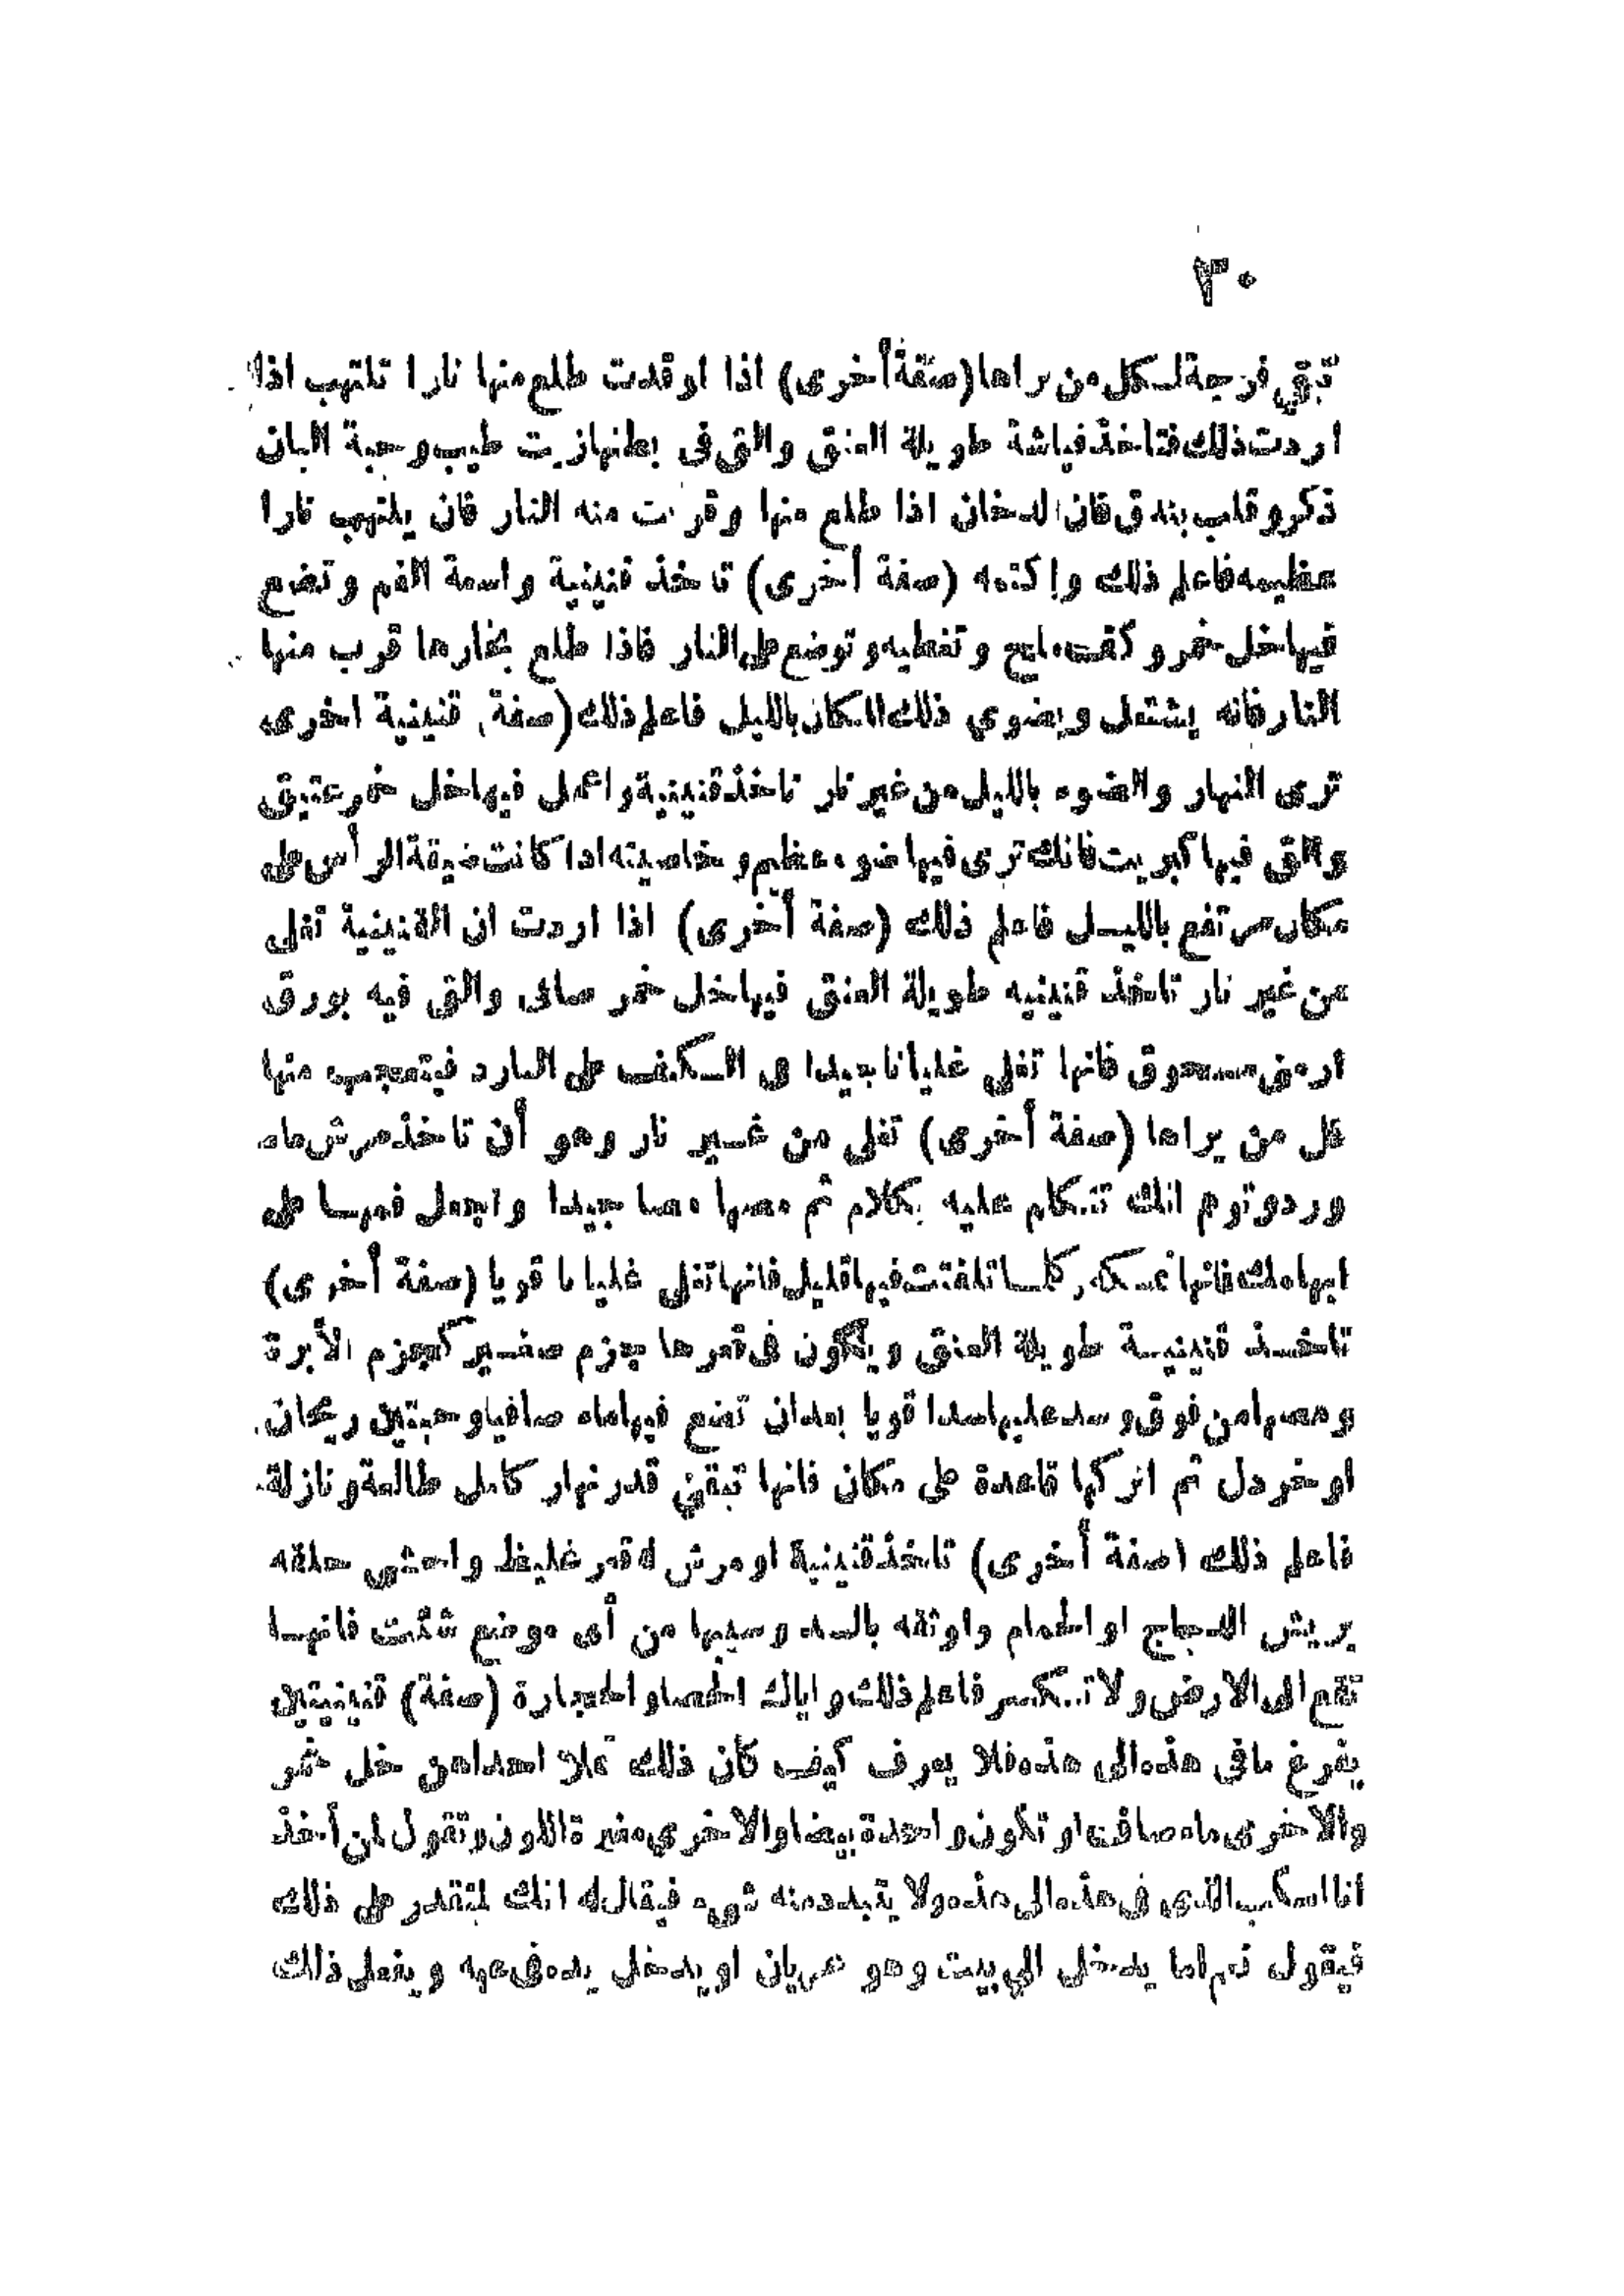 ٣٠
تبقى فرجة لكل من يراها (صفة أخرى) اذا اوقدت طلع منها نارا تلتهب اذا
اردت ذلك فتاخذ فياشة طويلة العنق والق فى بطنها زيت طيب وحبة البان
ذكر وقلب بندق فان الدخان اذا طلع منها وقربت منه النار فان يلتهب نارا
عظيمه فاعلم ذلك واكتمه (صفة أخرى) تاخذ قنينية واسعة الفم وتضع
فيها خل خمر وكفت مليح وتغطيه وتوضع على النار فاذا طلع بخارها قرب منها
النار فانه يشتعل ويضوي ذلك المكان بالليل فاعلم ذلك (صفة، قنينية اخرى
ترى النهار والضوء بالليل من غير نار تاخذ قنينية واعمل فيها خل خمر عتيق
والق فيها كبريت فانك ترى فيها ضوء عظيم وبخاصيته اذا كانت ضيقة الرأس على
مكان مرتفع بالليل فاعلم ذلك (صفة أخرى) اذا اردت ان القنينية تغلى
من غير نار تاخذ قنينيه طويلة العنق فيها خل خمر صافى والق فيه بورق
ارمنى مسحوق فانها تغلى غليانا جيدا فى الكف على البارد فيتعجب منها
كل من يراها (صفة أخرى) تغلى من غير نار وهو أن تاخذ مرش ماء
ورد وتوهم انك تتكلم عليه بكلام ثم مصها مصا جيدا واجعل فمها على
ابهامك فانها كلما تلفتت فيها قليل فانها تغلى غليانا قويا (صفة أخرى)
تاخذ قنينية طويلة العنق ويكون فى قعرها بجزم صغير كجزم الأبرة
ومصها من فوق وسد عليها سدا قويا بعد ان تضع فيها ماء صافيا وحبتين ريحان
او خردل ثم اتركها قاعدة على مكان فانها تبقى قدر نهار كامل طالعة ونازلة
فاعلم ذلك (صفة أخرى) تاخذ قنينية او مرش له قعر غليظ واحشى حلقه
بريش الدجاج او الحمام واوثقه بالسد وسيبها من أى موضع شئت فانها
تقع الى الارض ولا تنكسر فاعلم ذلك واياك الحصا والحجارة (صفة) قنينيتين
يفرغ مافى هذه الى هذه فلا يعرف كيف كان ذلك تملا احداهن خل خمر
والاخرى ماء صافى او تكون واحدة بيضا والاخرى مغيرة اللون وتقول لمن أخذ
انا اسكب الذى فى هذه الى هذه ولا يتبدد منه شيء فيقال له انك لتقدر على ذلك
فيقول نعم اما يدخل الى بيت وهو عريان او يدخل يده فى عبه ويفعل ذلك